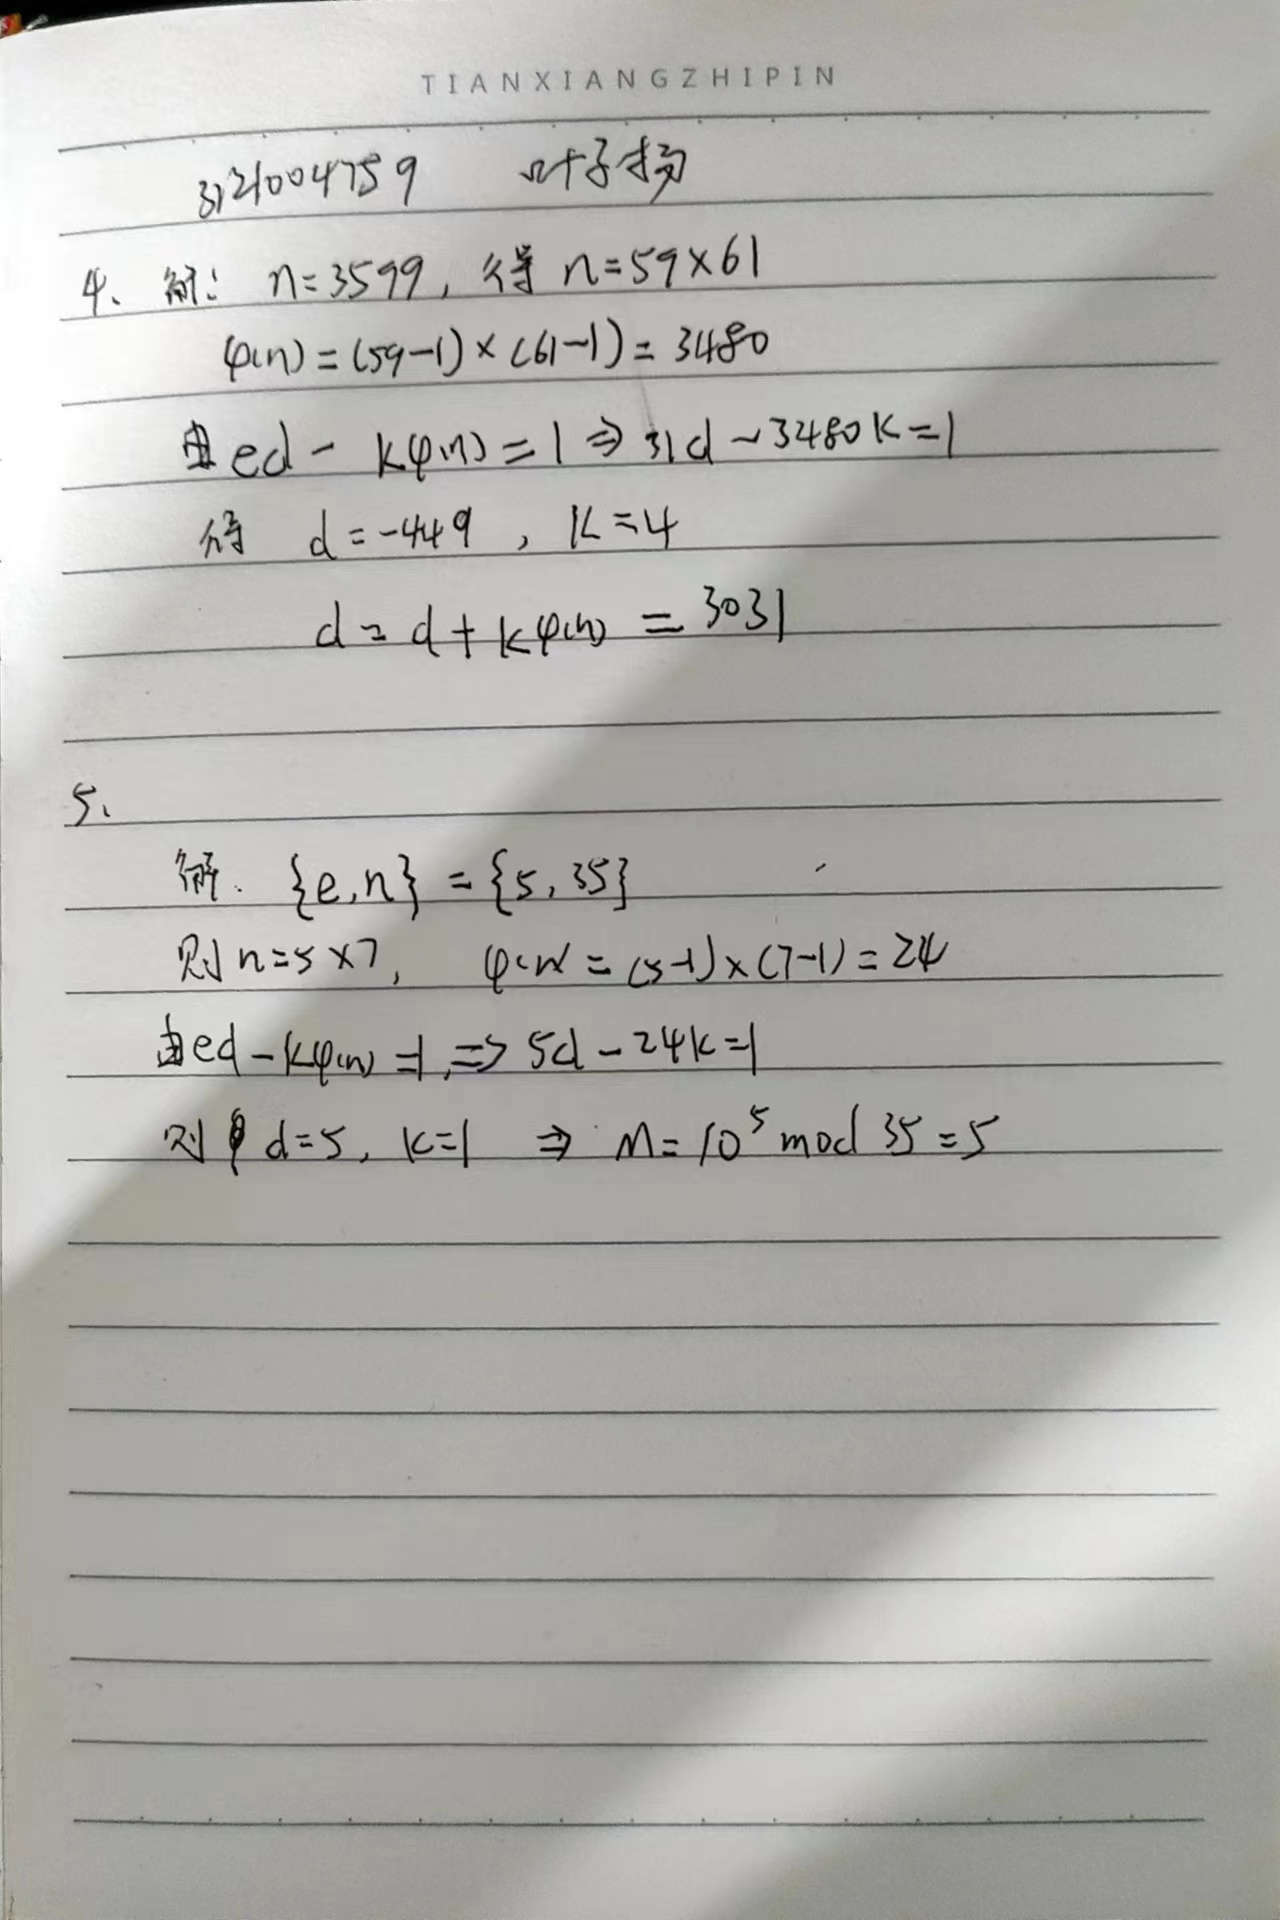 TIANXIANGZHIPIN
3121004759 叶子扬
4、解: n=3599, 得 n=59×61
φ(n)=(59-1)×(61-1)=3480
由 ed - kφ(n)=1⇒31d-3480k=1
得 d=-449, k=4
d=d+kφ(n)=3031
5、
解. {e,n}={5,35}
则n=5×7, φ(n)=(5-1)×(7-1)=24
由ed-kφ(n)=1,⇒5d-24k=1
则 d=5, k=1 ⇒ M=10⁵ mod 35=5